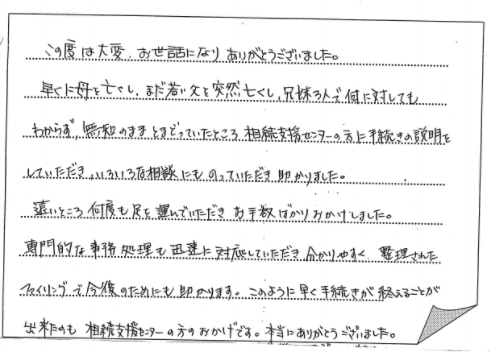 この度は大変、お世話になりありがとうございました。
早くに母を亡くし、まだ若い父を突然亡くし、兄妹3人で何に対しても
わからず、無知のままとまどっていたところ相続支援センターの方に手続きの説明を
していただき、いろいろな相談にものっていただき助かりました。
遠いところ何度も足を運んでいただきお手数ばかりおかけしました。
専門的な事務処理も迅速に対応していただき分かりやすく整理された
ファイリングで今後のためにも助かります。このように早く手続きが終えることが
出来たのも相続支援センターの方のおかげです。本当にありがとうございました。